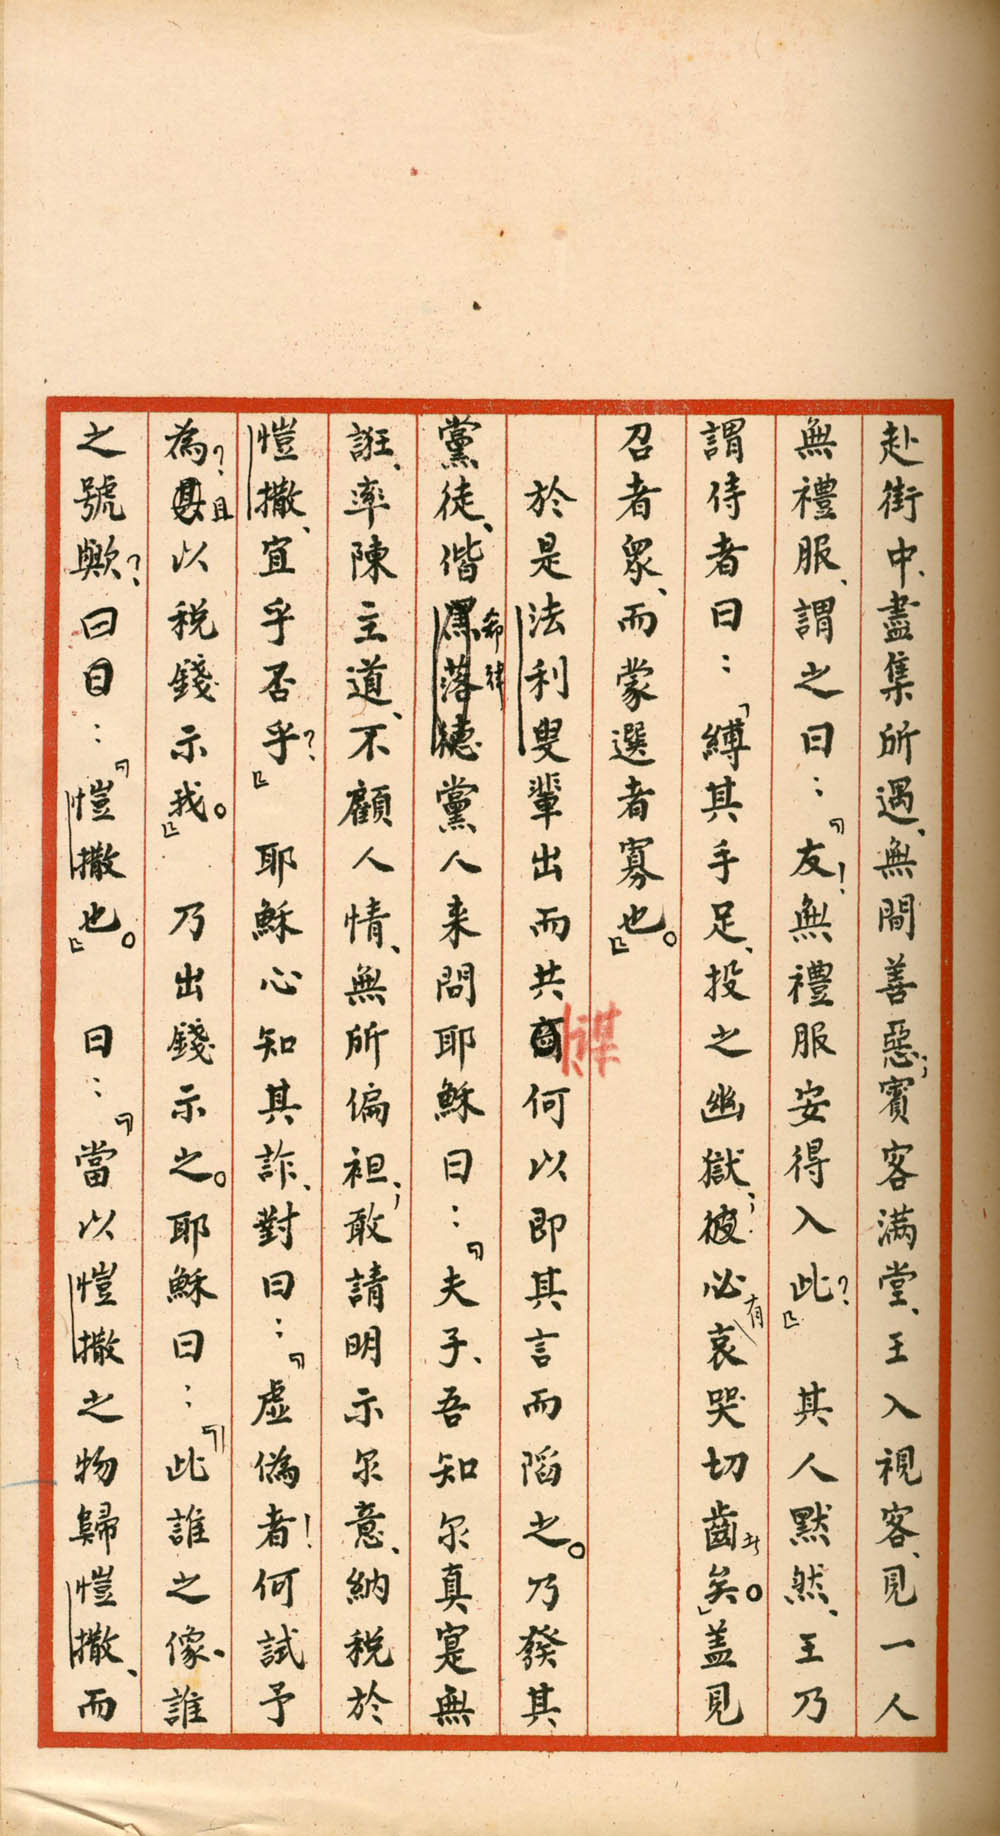 赴街中、盡集所遇、無間善惡；賓客滿堂、王入視客、見一人
無禮服、謂之曰：『友！無禮服安得入此？』其人默然、王乃
謂侍者曰：「縛其手足、投之幽獄；彼必有哀哭切齒者矣。」蓋見
召者眾、而蒙選者寡也。』
於是法利叟輩出而共謀何以即其言而陷之。乃發其
黨徒、偕希律黨人来問耶穌曰：『夫子、吾知尔真寔無
誑、率陳主道、不顧人情、無所偏袒；敢請明示尔意、納稅於
愷撒、宜乎否乎？』耶穌心知其詐、對曰：『虛偽者！何試予
為？且以税錢示我。』乃出錢示之。耶穌曰：『此誰之像、誰
之號歟？曰曰：『愷撒也。』曰：『當以愷撒之物歸愷撒、而